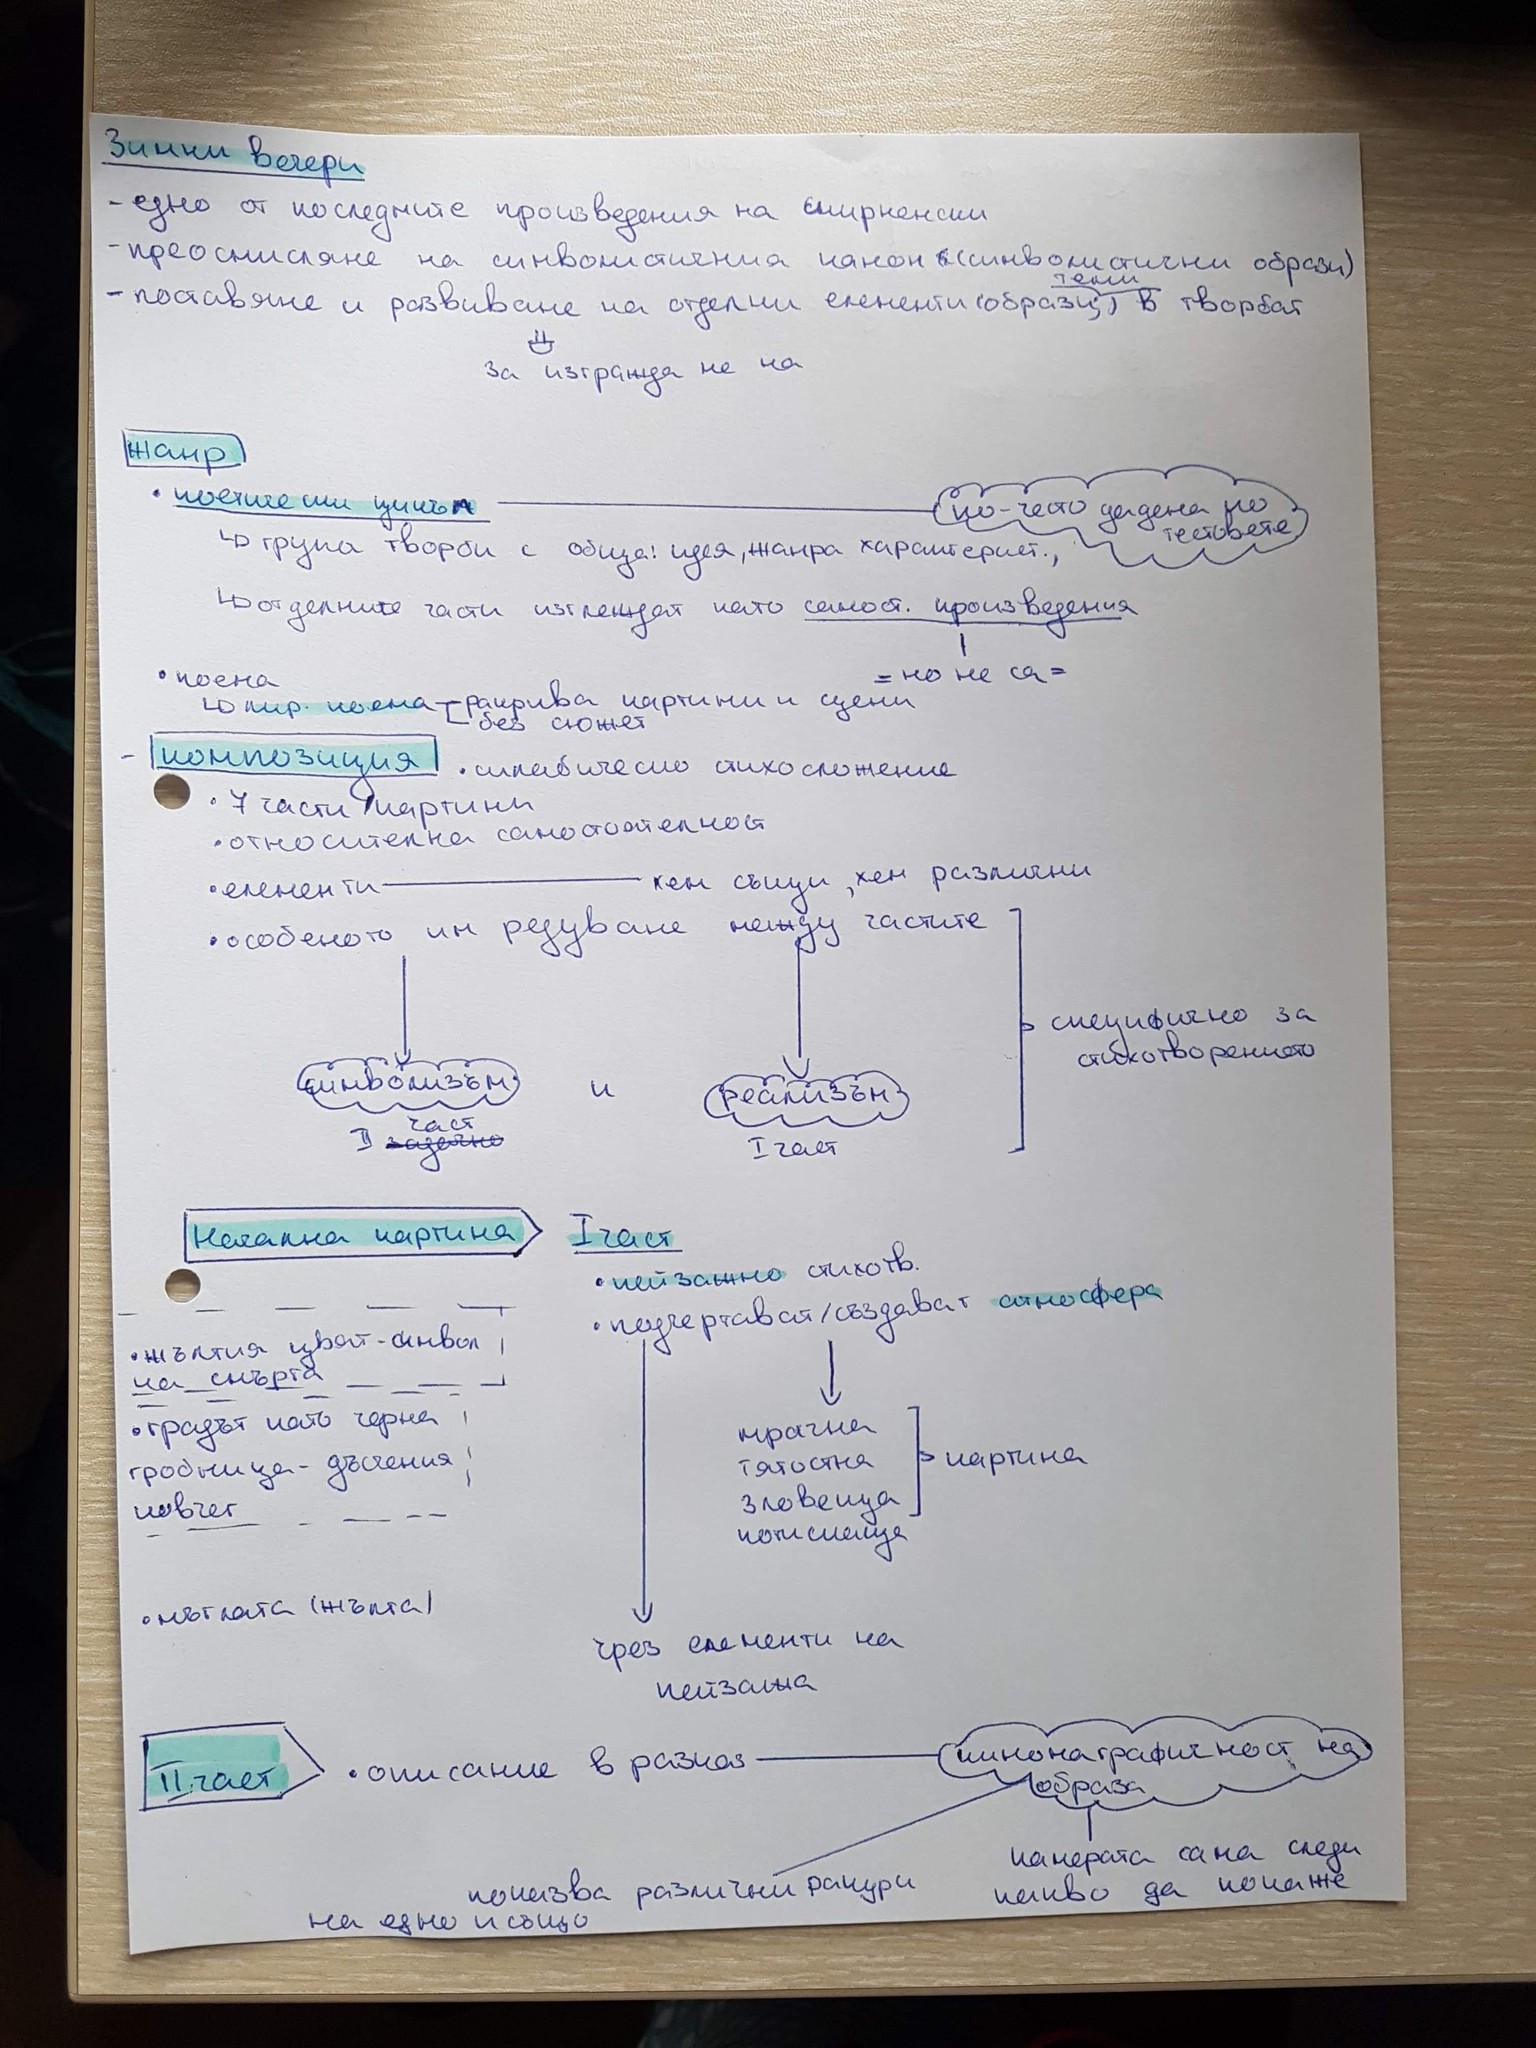 Зимни вечери
- едно от последните произведения на Смирненски
- преосмисляне на символистичния канон (символистични образи)
- поставяне и развиване на отделни елементи (образи, теми) в творбат
за изгражда не на
жанр
• поетически цикъл
по-често дадена по
тестовете
↳ група творби с обща: идея, жанра характерист.,
↳ отделните части изглеждат като самост. произведения
= но не са =
• поема
↳ лир. поема - разкрива картини и сцени
без сюжет
- композиция
• силабическо стихосложение
• 7 части / картини
• относителна самостоятелност
• елементи — хем същи, хем различни
• особеното им редуване между частите
специфично за
стихотворението
символизъм и реализъм
II част
I част
Начална картина
I част
• пейзажно стихотв.
• подчертават/създават атмосфера
• жълтия цвят - символ
на смърта
• градът като черна
гробница - дъсчения
ковчег
мрачна
тягостна
зловеща
потискаща
картина
• мъглата (жълта)
чрез елементи на
пейзажа
II част
• описание в разказ
кинематографичност на
образа
камерата сама следи
какво да покаже
показва различни ракурси
на едно и също